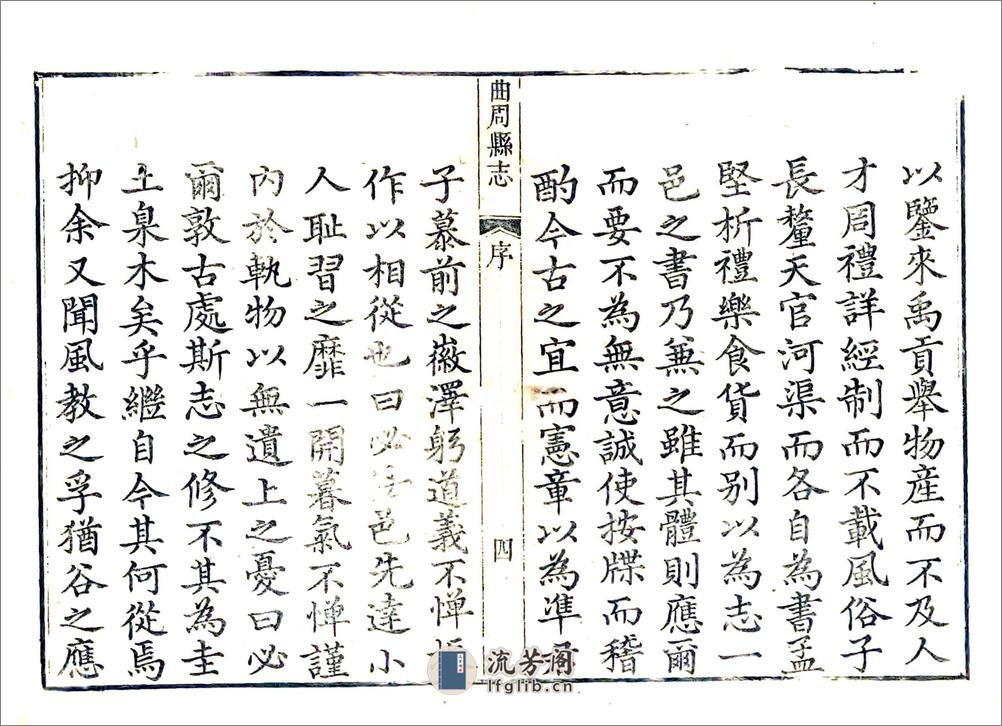 以鑒來禹貢舉物産而不及人
才周禮詳經制而不載風俗子
長釐天官河渠而各自為書孟
堅析禮樂食貨而别以為志一
邑之書乃兼之雖其體則應爾
而要不為無意誠使按牒而稽
酌今古之宜而憲章以為準
曲周縣志
序
四
子慕前之徽澤躬道義不憚
作以相從也曰必邑先達小
人耻習之靡一開暮氣不憚謹
內於執物以無遺上之憂曰必
爾敦古處斯志之修不其為圭
土臬木矣乎繼自今其何從焉
抑余又聞風教之孚猶谷之應
流芳阁
lfglib.cn